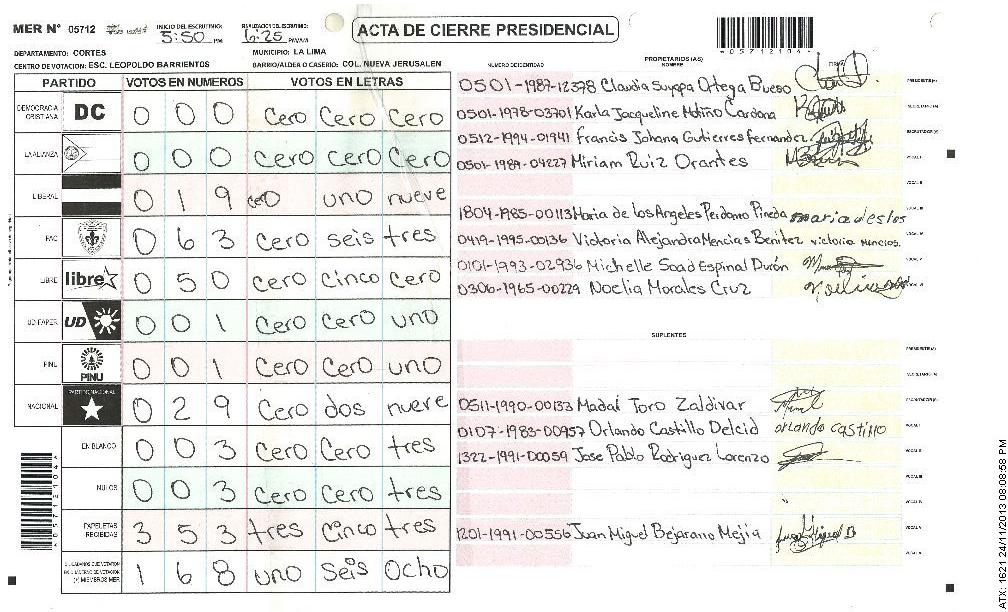 MER Nº 05712
INICIO DEL ESCRUTINIO: 5:50 PM
FINALIZACION DEL ESCRUTINIO: 6:25 PM/AM
ACTA DE CIERRE PRESIDENCIAL
*05712104*
DEPARTAMENTO: CORTES
MUNICIPIO: LA LIMA
CENTRO DE VOTACION: ESC. LEOPOLDO BARRIENTOS
BARRIO/ALDEA O CASERIO: COL. NUEVA JERUSALEN
PARTIDO VOTOS EN NUMEROS VOTOS EN LETRAS
DEMOCRACIA CRISTIANA DC 0 0 0 Cero Cero Cero
LA ALIANZA 0 0 0 Cero Cero Cero
LIBERAL 0 1 9 Cero uno nueve
PAC 0 6 3 Cero seis tres
LIBRE libre 0 5 0 Cero Cinco Cero
UD/FAPER UD 0 0 1 Cero Cero uno
PINU PINU 0 0 1 Cero Cero uno
NACIONAL PARTIDO NACIONAL 0 2 9 Cero dos nueve
EN BLANCO 0 0 3 Cero Cero tres
NULOS 0 0 3 Cero Cero tres
PAPELETAS RECIBIDAS 3 5 3 tres Cinco tres
CIUDADANOS QUE VOTARON (+) MIEMBROS MER 1 6 8 uno Seis Ocho
NUMERO DE IDENTIDAD
PROPIETARIOS (AS)
NOMBRE
FIRMA
0501-1987-12378 Claudia Suyapa Ortega Bueso PRESIDENTE (A)
0501-1978-03701 Karla Jacqueline Motiño Cardona SECRETARIO (A)
0512-1994-01941 Francis Johana Gutierres fernandez ESCRUTADOR (A)
0501-1989-04227 Miriam Ruiz Orantes VOCAL I
VOCAL II
1804-1985-00113 Maria de los Angeles Perdomo Pineda maria de los VOCAL III
0419-1995-00136 Victoria Alejandra Mencias Benitez victoria mencias. VOCAL IV
0101-1993-02936 Michelle Saad Espinal Durón VOCAL V
0306-1965-00229 Noelia Morales Cruz VOCAL VI
SUPLENTES
PRESIDENTE (A)
SECRETARIO (A)
0511-1990-00133 Madai Toro Zaldivar ESCRUTADOR (A)
0107-1983-00957 Orlando Castillo Delcid orlando castillo VOCAL I
1322-1991-00059 Jose Pablo Rodriguez Lorenzo VOCAL II
VOCAL III
VOCAL IV
1201-1991-00556 Juan Miguel Bejarano Mejia VOCAL V
VOCAL VI
ATX: 1621 24/11/2013 08:08:58 PM